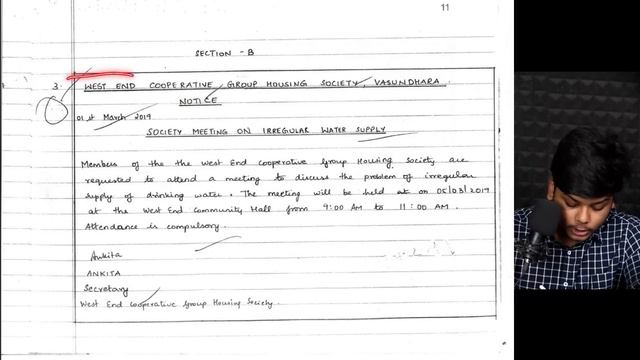 11
SECTION - B
3. WEST END COOPERATIVE GROUP HOUSING SOCIETY, VASUNDHARA.
NOTICE
01st March 2019
SOCIETY MEETING ON IRREGULAR WATER SUPPLY
Members of the the West End Cooperative Group Housing Society are
requested to attend a meeting to discuss the problem of irregular
supply of drinking water. The meeting will be held at on 05/03/2019
at the West End Community Hall from 9:00 AM to 11:00 AM.
Attendance is compulsory.
Ankita
ANKITA
Secretary
West End Cooperative Group Housing Society.